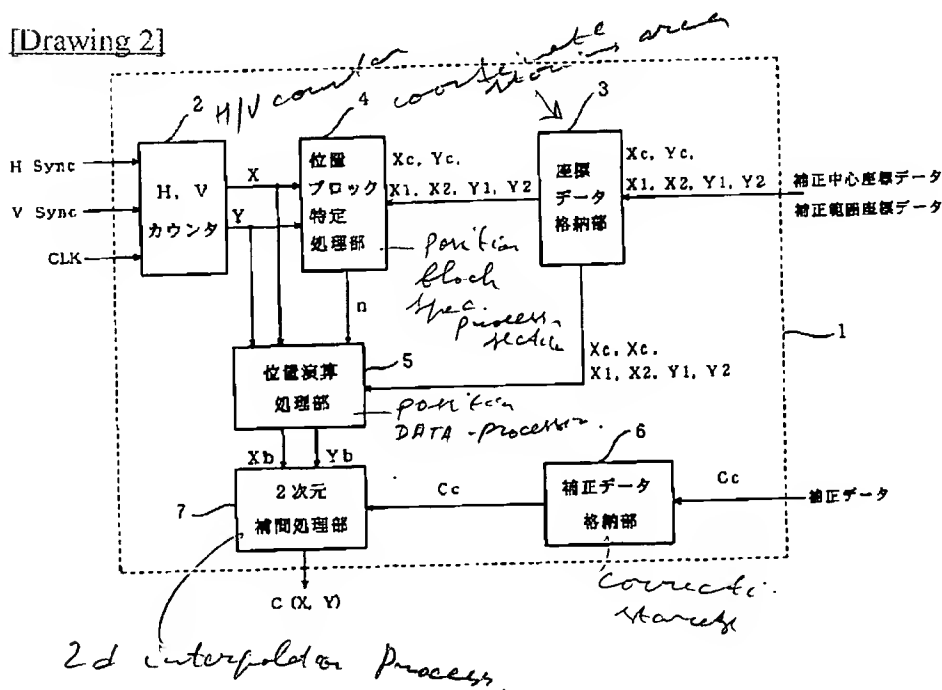 [Drawing 2]
H/V counter
coordinate
storing area
2
4
3
1
H Sync
V Sync
CLK
H, V
カウンタ
X
Y
位置
ブロック
特定
処理部
Xc, Yc,
X1, X2, Y1, Y2
座標
データ
格納部
Xc, Yc,
X1, X2, Y1, Y2
補正中心座標データ
補正範囲座標データ
position
block
spec.
process
section
n
位置演算
処理部
5
Xc, Xc,
X1, X2, Y1, Y2
position
DATA-processin.
Xb
Yb
7
2次元
補間処理部
Cc
6
補正データ
格納部
Cc
補正データ
C (X, Y)
correcti.
storage
2d interpolation Process.